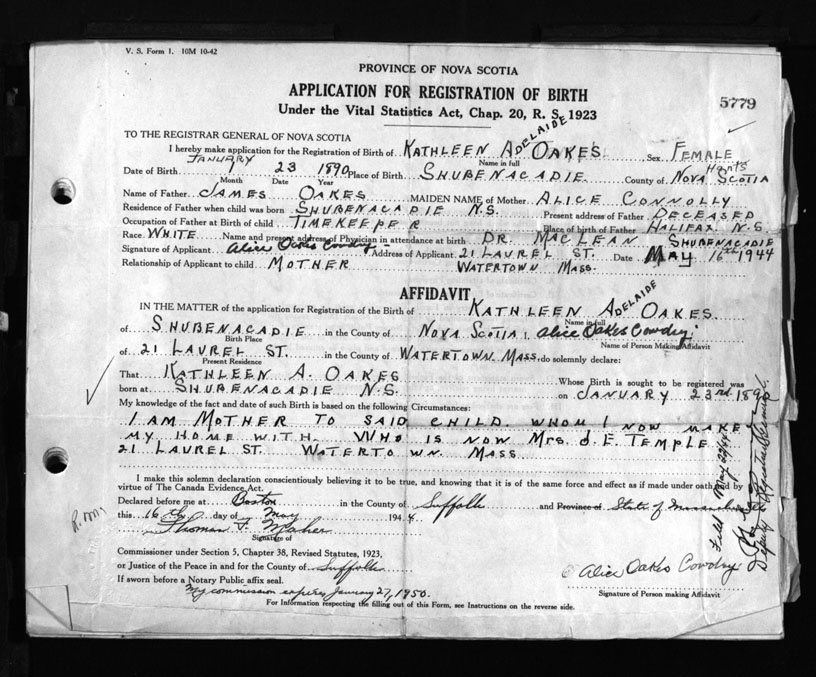 V. S. Form 1. 10M 10-42
PROVINCE OF NOVA SCOTIA
APPLICATION FOR REGISTRATION OF BIRTH
5779
Under the Vital Statistics Act, Chap. 20, R. S. 1923
TO THE REGISTRAR GENERAL OF NOVA SCOTIA
I hereby make application for the Registration of Birth of KATHLEEN ADELAIDE OAKES Sex FEMALE
Name in full
Date of Birth JANUARY 23 1890 Place of Birth SHUBENACADIE County of Hants NOVA SCOTIA
Month Date Year
Name of Father JAMES OAKES MAIDEN NAME of Mother ALICE CONNOLLY
Residence of Father when child was born SHUBENACADIE N.S. Present address of Father DECEASED
Occupation of Father at Birth of child TIMEKEEPER Place of birth of Father HALIFAX N.S.
Race WHITE Name and present address of Physician in attendance at birth DR. MACLEAN SHUBENACADIE
Signature of Applicant Alice Oakes Cowdry Address of Applicant 21 LAUREL ST. Date MAY 16th 1944
Relationship of Applicant to child MOTHER WATERTOWN MASS.
AFFIDAVIT
IN THE MATTER of the application for Registration of the Birth of KATHLEEN ADELAIDE OAKES
Name in full
of SHUBENACADIE in the County of NOVA SCOTIA I, Alice Oakes Cowdry
Birth Place Name of Person Making Affidavit
of 21 LAUREL ST. in the County of WATERTOWN MASS. do solemnly declare:
Present Residence
That KATHLEEN A. OAKES Whose Birth is sought to be registered was
born at SHUBENACADIE N.S. on JANUARY 23rd 1890
My knowledge of the fact and date of such Birth is based on the following Circumstances:
I AM MOTHER TO SAID CHILD WHOM I NOW MAKE
MY HOME WITH. WHO IS NOW MRS. J. E. TEMPLE
21 LAUREL ST. WATERTOWN. MASS.
I make this solemn declaration conscientiously believing it to be true, and knowing that it is of the same force and effect as if made under oath and by
virtue of The Canada Evidence Act.
Declared before me at Boston in the County of Suffolk and Province of State of Massachusetts
this 16th day of May 1944
Thomas F. Maher
Signature of
Commissioner under Section 5, Chapter 38, Revised Statutes, 1923,
or Justice of the Peace in and for the County of Suffolk
Alice Oakes Cowdry
If sworn before a Notary Public affix seal.
Signature of Person making Affidavit
My commission expires January 27, 1950.
For Information respecting the filling out of this Form, see Instructions on the reverse side.
Filed May 22/44
Deputy Registrar General